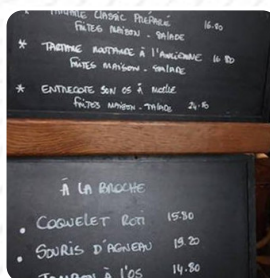 * TARTARE CLASSIC PRÉPARÉ 16.80
FRITES MAISON - SALADE
* TARTARE MOUTARDE À l'ANCIENNE 16.80
FRITES MAISON - SALADE
* ENTRECOTE SON OS À MOELLE
FRITES MAISON - SALADE 24.80
À LA BROCHE
• COQUELET ROTI 15.80
• SOURIS D'AGNEAU 19.20
JAMBON À l'OS 14.80